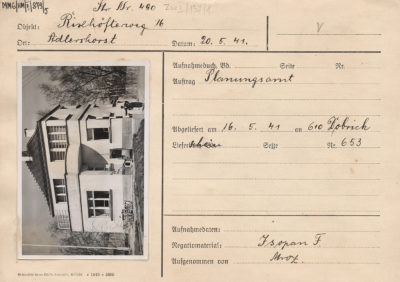 MMG/HM/II/879/5
Ihr Nr. 460
Objekt: Rixhöfterweg 16
Ort: Adlershorst
Datum: 20. 5. 41.
V
Aufnahmebuch, Bd. Seite Nr.
Auftrag Planungsamt
Abgeliefert am 16. 5. 41 an 610 Dobrick
Lieferschein Seite Nr. 653
Aufnahmedaten:
Negativmaterial: Isopan F.
Aufgenommen von